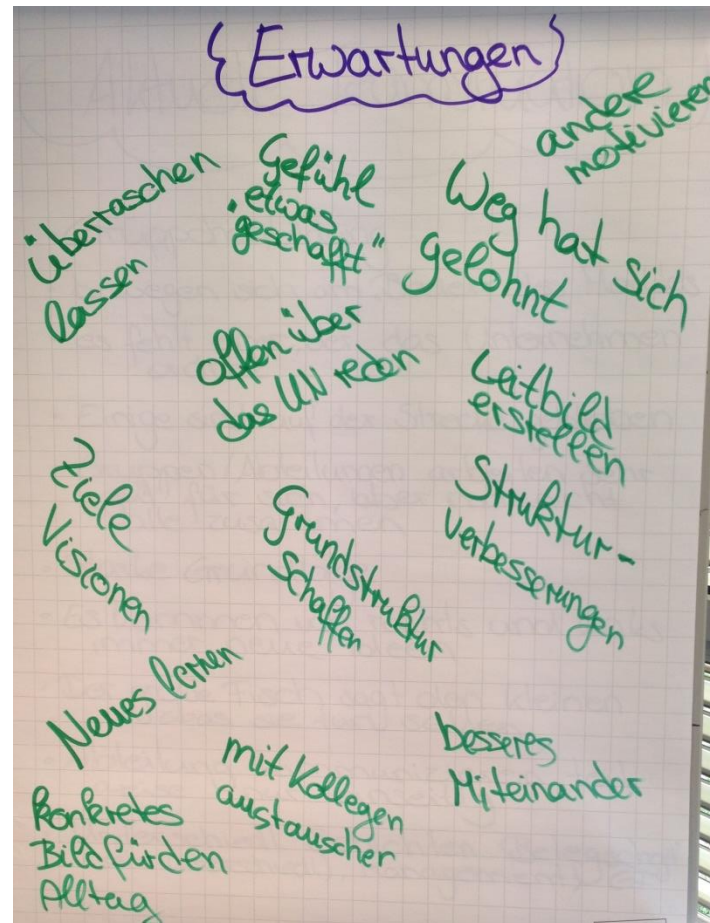 Erwartungen
andere
motivieren
übertaschen
lassen
Gefühl
etwas
"geschafft"
Weg hat sich
gelohnt
offen über
das UN reden
Leitbild
erstellen
Ziele
Visionen
Grundstruktur
schaffen
Struktur-
verbesserungen
Neues lernen
mit Kollegen
austauschen
besseres
Miteinander
konkretes
Bild für den
Alltag